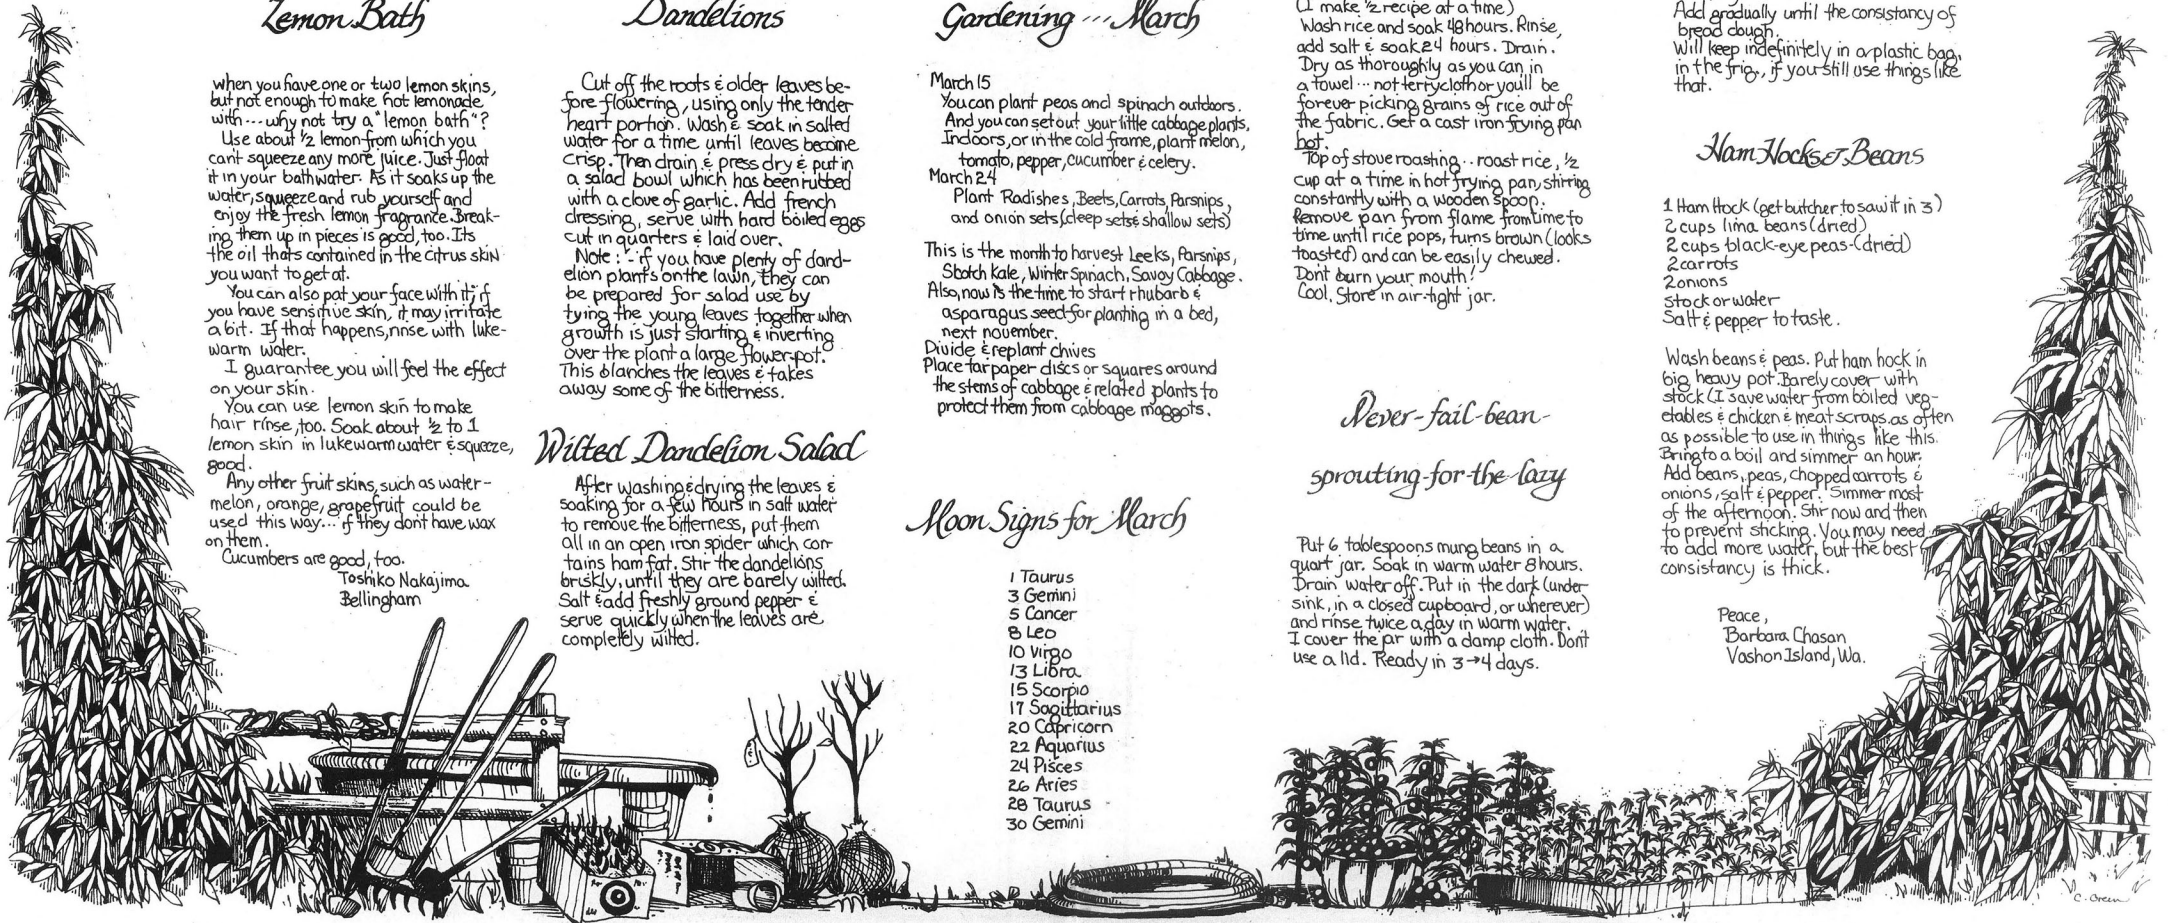 Lemon Bath
when you have one or two lemon skins,
but not enough to make hot lemonade
with...why not try a "lemon bath"?
Use about ½ lemon from which you
can't squeeze any more juice. Just float
it in your bathwater. As it soaks up the
water, squeeze and rub yourself and
enjoy the fresh lemon fragrance. Break-
ing them up in pieces is good, too. Its
the oil thats contained in the citrus skin
you want to get at.
You can also pat your face with it; if
you have sensitive skin, it may irritate
a bit. If that happens, rinse with luke-
warm water.
I guarantee you will feel the effect
on your skin.
You can use lemon skin to make
hair rinse, too. Soak about ½ to 1
lemon skin in lukewarm water & squeeze,
good.
Any other fruit skins, such as water-
melon, orange, grapefruit could be
used this way... if they dont have wax
on them.
Cucumbers are good, too.
Toshiko Nakajima
Bellingham
Dandelions
Cut off the roots & older leaves be-
fore flowering, using only the tender
heart portion. Wash & soak in salted
water for a time until leaves become
crisp. Then drain & press dry & put in
a salad bowl which has been rubbed
with a clove of garlic. Add french
dressing, serve with hard boiled eggs
cut in quarters & laid over.
Note: - if you have plenty of dand-
elion plants on the lawn, they can
be prepared for salad use by
tying the young leaves together when
growth is just starting & inverting
over the plant a large flower-pot.
This blanches the leaves & takes
away some of the bitterness.
Wilted Dandelion Salad
After washing & drying the leaves &
soaking for a few hours in salt water
to remove the bitterness, put them
all in an open iron spider which con-
tains ham fat. Stir the dandelions
briskly, until they are barely wilted.
Salt & add freshly ground pepper &
serve quickly when the leaves are
completely wilted.
Gardening ... March
March 15
You can plant peas and spinach outdoors.
And you can set out your little cabbage plants,
Indoors, or in the cold frame, plant melon,
tomato, pepper, cucumber & celery.
March 24
Plant Radishes, Beets, Carrots, Parsnips,
and onion sets, (deep sets & shallow sets)
This is the month to harvest Leeks, Parsnips,
Skotch kale, Winter Spinach, Savoy Cabbage.
Also, now is the time to start rhubarb &
asparagus seed for planting in a bed,
next november.
Divide & replant chives
Place tarpaper discs or squares around
the stems of cabbage & related plants to
protect them from cabbage maggots.
Moon Signs for March
1 Taurus
3 Gemini
5 Cancer
8 Leo
10 Virgo
13 Libra
15 Scorpio
17 Sagittarius
20 Capricorn
22 Aquarius
24 Pisces
26 Aries
28 Taurus
30 Gemini
(I make ½ recipe at a time)
Wash rice and soak 48 hours. Rinse,
add salt & soak 24 hours. Drain.
Dry as thoroughly as you can in
a towel... not terrycloth or youll be
forever picking grains of rice out of
the fabric. Get a cast iron frying pan
hot.
Top of stove roasting.. roast rice, ½
cup at a time in hot frying pan, stirring
constantly with a wooden spoon.
Remove pan from flame from time to
time until rice pops, turns brown (looks
toasted) and can be easily chewed.
Don't burn your mouth!
Cool. Store in air-tight jar.
Never-fail-bean-
sprouting-for-the-lazy
Put 6 tablespoons mung beans in a
quart jar. Soak in warm water 8 hours.
Drain water off. Put in the dark (under
sink, in a closed cupboard, or wherever)
and rinse twice a day in warm water.
I cover the jar with a damp cloth. Don't
use a lid. Ready in 3→4 days.
Add gradually until the consistancy of
bread dough.
Will keep indefinitely in a plastic bag,
in the frig., if your still use things like
that.
Ham Hocks & Beans
1 Ham Hock (get butcher to saw it in 3)
2 cups lima beans (dried)
2 cups black-eye peas-(dried)
2 carrots
2 onions
stock or water
Salt & pepper to taste.
Wash beans & peas. Put ham hock in
big heavy pot. Barely cover with
stock (I save water from boiled veg-
etables & chicken & meat scraps as often
as possible to use in things like this.
Bring to a boil and simmer an hour.
Add beans, peas, chopped carrots &
onions, salt & pepper. Simmer most
of the afternoon. Stir now and then
to prevent sticking. You may need
to add more water, but the best
consistancy is thick.
Peace,
Barbara Chasan
Vashon Island, Wa.
C. Green